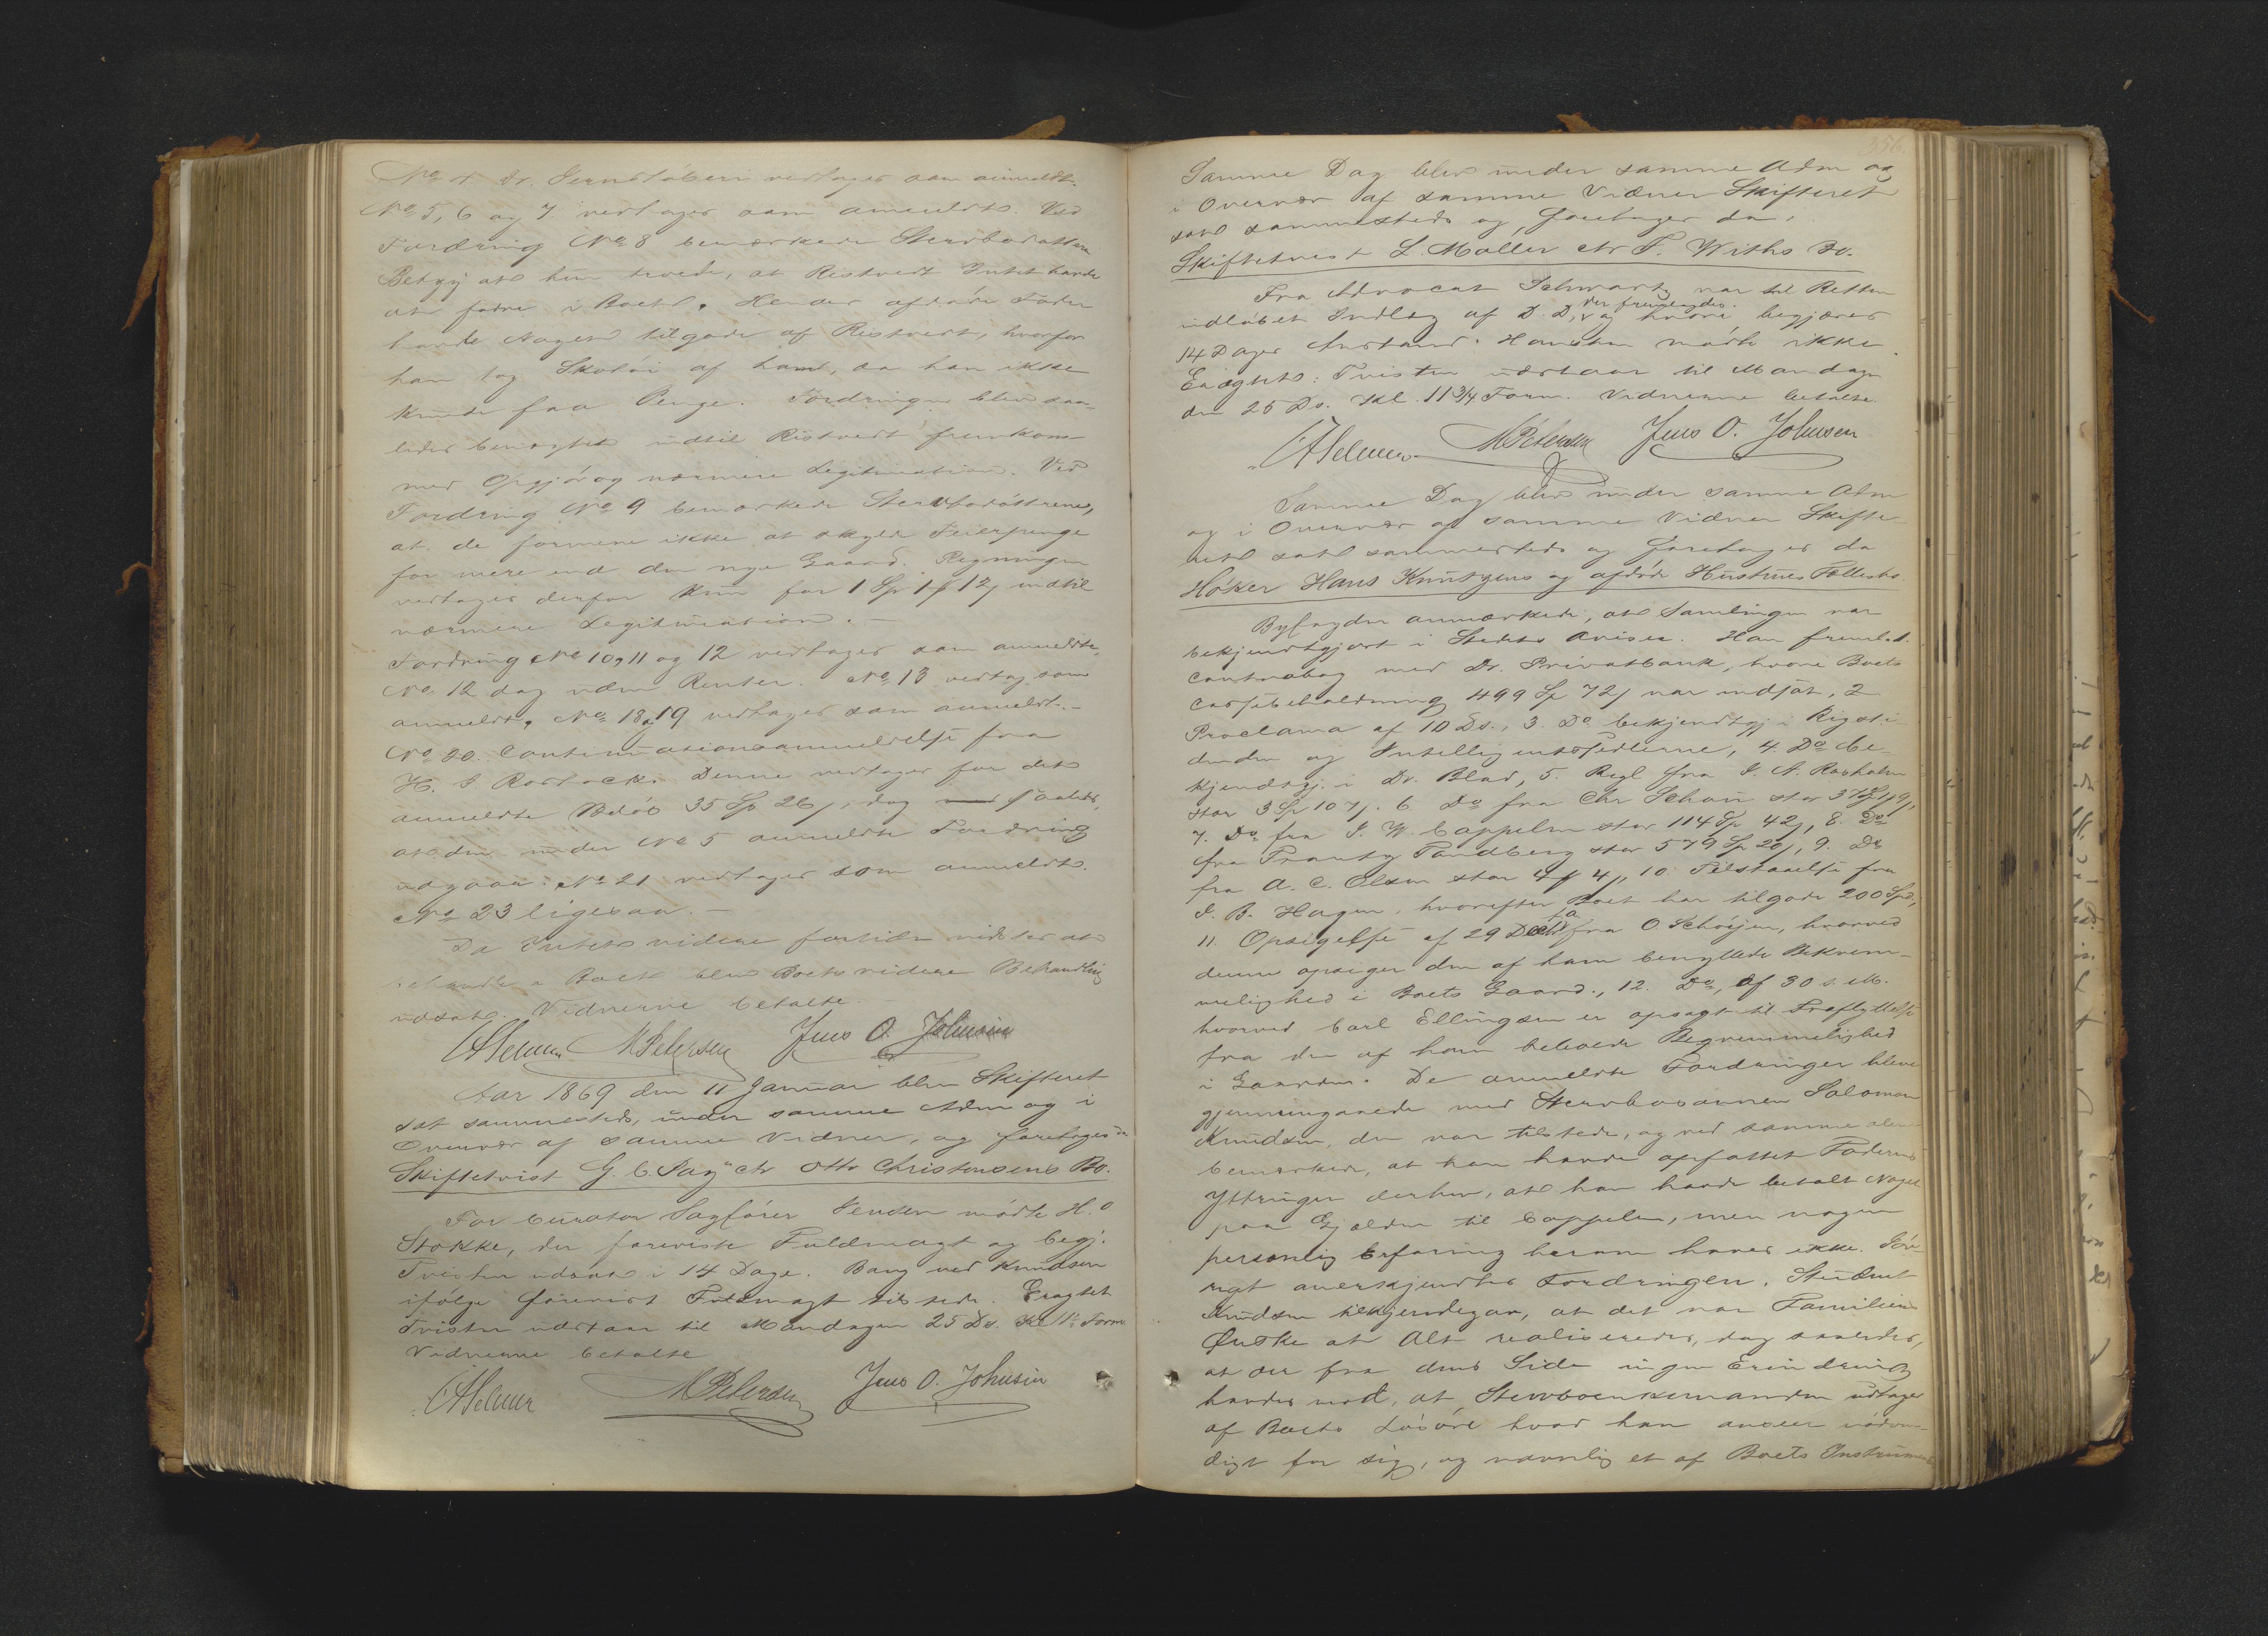 No 4 Dr. Jernstöberi vedtages som anmeldt.
No 5, 6 og 7 vedtages som anmeldte. Ved
Fordring No 8 bemærkede Stervbodatteren
Betzy at hun troede, at Ristvedt Intet havde
at fodre i Boet. Hendes afdøde Fader
havde Noget tilgode af Ristvedt, hvorfor
han tog Skotøi af ham, da han ikke
kunde faa Penge. Fordringen blev saa-
ledes benægtet indtil Ristvedt fremkom
med Opgjør og nærmere Legitimation. Ved
Fordring No 9 bemærkede Stervbodøttrene,
at de formene ikke at skylde Feierpenge
for mere end den nye Gaard. Regningen
vedtages derfor kun for 1 Sp 1 ƒ 12 ʃ indtil
nærmere Legitimation. -
Fordring No 10, 11 og 12 vedtages som anmeldte,
No 12 dog uden Renter. No 13 vedtog. som
anmeldt, No 18 og 19 vedtages som anmeldt. -
No 20. Continuationsanmeldelse fra
H. S. Rostock. Denne vedtages for det
anmeldte Beløb 35 Sp 26 ʃ, dog saaledes,
at den under No 5 anmeldte Fordring
udgaaer. No 21 vedtages som anmeldt.
No 23 ligesaa. -
Da Intet videre fortiden vidstes at
behandle i Boet blev Boets videre Behandling
udsat. Vidnerne betalte.
M Petersen Jens O. Johnsen
Aar 1869 den 11 Januar blev Skifteret
sat sammesteds, under samme Adm og i
Overvær af samme Vidner, og foretages da
Skiftetvist G. C. Pay ctr Otto Christensens Bo.
For Curator Sagfører Jensen mødte H. O
Stokke, der foreviste Fuldmagt og begj.
Tvisten udsat i 14 Dage. Bang ved Knudsen
ifølge forevist Fuldmagt tilstede. Eragtet
Tvisten udstaar til Mandagen 25 Ds. Kl 11 ½ Form.
Vidnerne betalte
M Petersen Jens O. Johnsen
356.
Samme Dag blev under samme Adm og
i Overvær af samme Vidner Skifteret
sat sammesteds og foretages da:
Skiftetvist L. Møller ctr F. Withs Bo.
Fra Advocat Schwartz var til Retten
indløbet Indlæg af D. D., der fremlagdes. og hvori begjæres
14 Dages Anstand. Hansen mødte ikke.
Eragtet: Tvisten udstaar til Mandagen
den 25 Ds. Kl. 11 3/4 Form. Vidnerne betalte.
M Petersen Jens O. Johnsen
Samme Dag blev under samme Adm
og i Overvær af samme Vidner Skifte-
ret sat sammesteds og foretages da
Høker Hans Knutzens og afdøde Hustrues Fællesbo
Byfogden anmærkede, at Samlingen var
bekjendtgjort i Stedets Aviser. Han freml. 1.
Contrabog med Dr. Privatbank, hvori Boets
Cassebeholdning 499 Sp 72 ʃ var indsat, 2
Proclama af 10 Ds., 3. Do bekjendtgj i Rigsti-
dende og Intelligentssedlerne, 4. Do be-
kjendtgj. i Dr. Blad, 5. Regl fra J. A. Rosholm
stor 3 Sp 107 ʃ. 6 Do fra Chr Schou stor
7. Do fra J. W. Cappelen stor 114 Sp 42 ʃ, 8. Do
fra Frantz Tandberg stor 579 Sp 20 ʃ, 9. Do
fra A. C. Olsen stor 4 ƒ 4 ʃ, 10. Tilstaaelse fra
J. B. Hagen, hvorefter Boet har tilgode 200 Spd,
11. Opsigelse af 29 Decbr fra O. Schöyen, hvorved
denne opsiger den af ham benyttede Bekvem-
melighed i Boets Gaard., 12. Do, af 30 s. M.
hvorved Carl Ellingsen er opsagt til Fraflyttelse
fra den af ham beboede Beqvemmelighed
i Gaarden. De anmeldte Fordringer bleve
gjennemgaaede med Stervbosønnen Salomon
Knudsen, der var tilstede, og ved samme alene
bemærkede, at han havde opfattet Faderens
Yttringer derhen, at han havde betalt Noget
paa Gjælden til Cappelen, men nogen
personlig Erfaring herom haves ikke. Iøv-
rigt anerkjendtes Fordringen. Student
Knudsen tilkjendegav, at det var Familiens
Ønske at Alt realiseredes, dog saaledes,
at der fra dens Side ingen Erindring
havdes mod, at Stervboenkemanden udtager
af Boets Løsøre hvad han anseer nødven-
digt for sig, og navnlig et af Boets Instrumenter